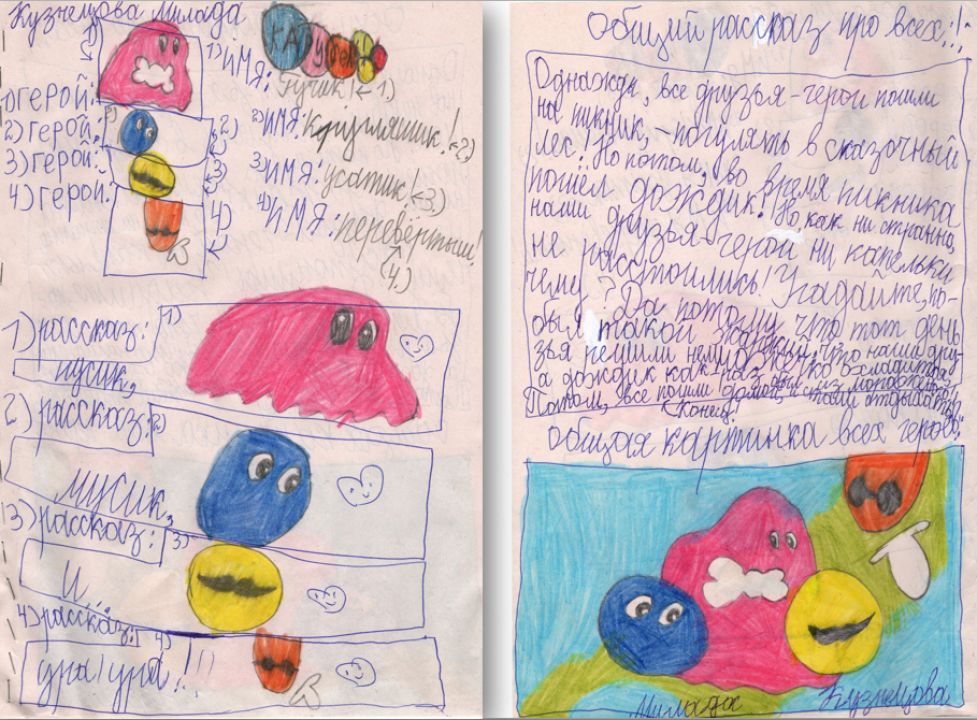 Кузнецова Милада
1) ИМЯ: Гучик! ←1)
1) герой:
2) герой: 2)
2) ИМЯ: Кругляшик! ←2)
3) герой: ←3)
3) ИМЯ: усатик! ←3)
4) герой: 4)
4) ИМЯ: перевёртыш!
4.)
1) рассказ: 1)
пусик,
2) рассказ: 2)
мусик,
3) рассказ: 3)
и..
4) рассказ: 4)
ура! ура!!!!
Общий рассказ про всех:!
Однажды, все друзья-герои пошли
на пикник, - погулять в сказочный
лес! Но потом, во время пикника
пошёл дождик! Но, как ни странно,
наши друзья-герои ни капельки
не расстоились! Угадайте, по-
чему? Да потому, что тот день
был такой жаркий, что наши дру-
зья решили немного охладится,
а дождик как раз
Потом, все пошли домой, и стали отдыхать.
Конец!
общая картинка всех героев:
Милада Кузнецова